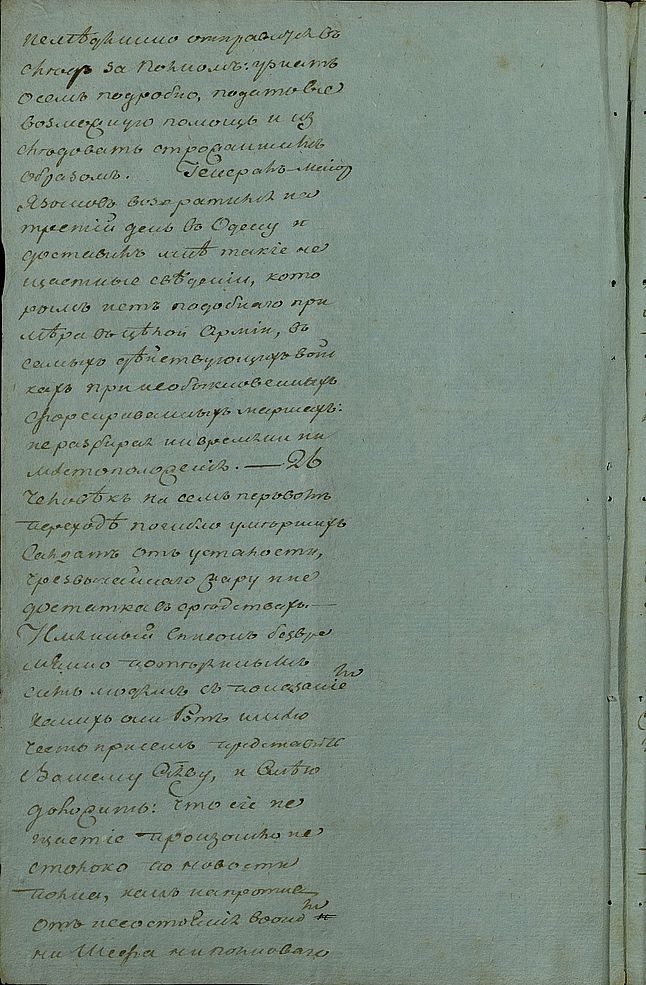 немѣдлѣнно отправился въ
слѣдъ за полкомъ: узнать
о семъ подробно, подать все
возможную помощь и из
слѣдовать строжайшимъ
образомъ. Генералъ-маіор
Языковъ возвратился на
третій день въ Одессу и
доставилъ мнѣ такіе не
щастные свѣденіи, кото
рымъ нетъ подобнаго при
мѣра въ цѣлой Арміи, въ
самыхъ дѣйствующихъ вой
скахъ при необыкновенныхъ
сфорсированныхъ маршахъ:
не разбирая ни времени ни
мѣстоположенія. — 26
Человѣкъ на семъ первомъ
переходѣ погибло умершихъ
Салдатъ отъ усталости,
чрезвычайнаго жару и не
достатка въ средствахъ —
Имянный Списокъ безвре
мѣнно потеряннымъ
симъ людямъ съ показаніе
какихъ они Ротъ имѣю
честь присемъ представить
Вашему Ству, и Смѣю
доложить: что сіе не
щастіе произошло не
столько по новости
полка, какъ напротив
отъ несостоянія въ ономъ
ни Шефа ни полковаго